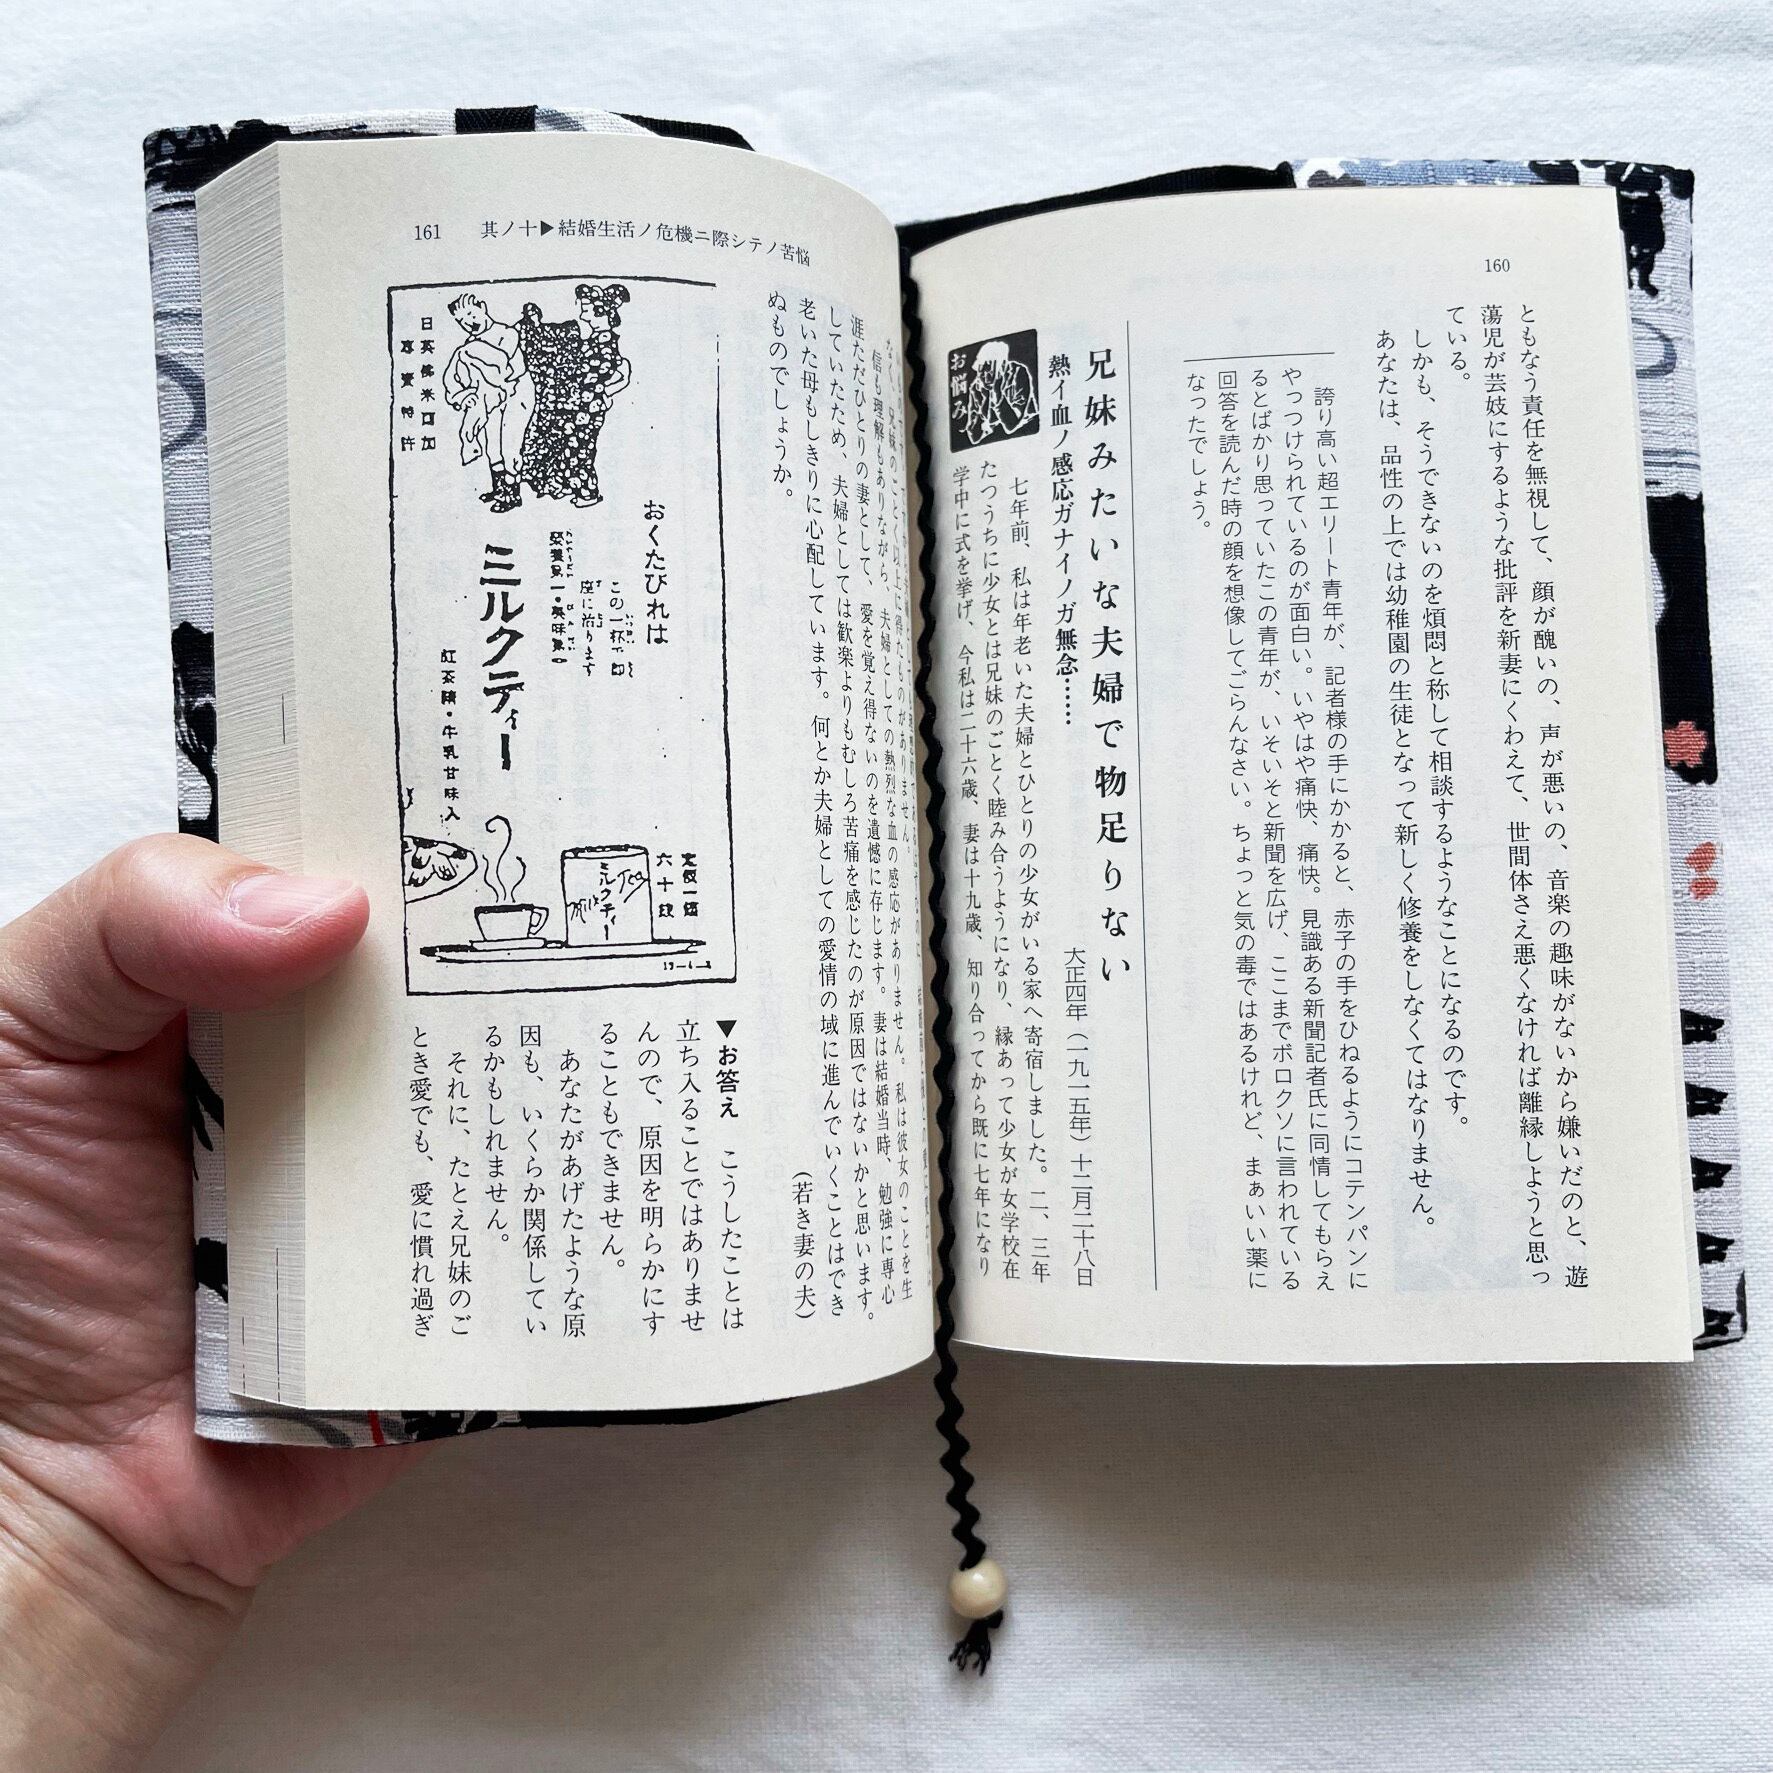 160
ともなう責任を無視して、顔が醜いの、声が悪いの、音楽の趣味がないから嫌いだのと、遊
蕩児が芸妓にするような批評を新妻にくわえて、世間体さえ悪くなければ離縁しようと思っ
ている。
しかも、そうできないのを煩悶と称して相談するようなことになるのです。
あなたは、品性の上では幼稚園の生徒となって新しく修養をしなくてはなりません。
誇り高い超エリート青年が、記者様の手にかかると、赤子の手をひねるようにコテンパンに
やっつけられているのが面白い。いやはや痛快、痛快。見識ある新聞記者氏に同情してもらえ
るとばかり思っていたこの青年が、いそいそと新聞を広げ、ここまでボロクソに言われている
回答を読んだ時の顔を想像してごらんなさい。ちょっと気の毒ではあるけれど、まぁいい薬に
なったでしょう。
兄妹みたいな夫婦で物足りない
熱イ血ノ感応ガナイノガ無念……
大正四年（一九一五年）十二月二十八日
お悩み
七年前、私は年老いた夫婦とひとりの少女がいる家へ寄宿しました。二、三年
たつうちに少女とは兄妹のごとく睦み合うようになり、縁あって少女が女学校在
学中に式を挙げ、今私は二十六歳、妻は十九歳、知り合ってから既に七年になり
161
其ノ十▶結婚生活ノ危機ニ際シテノ苦悩
信も理解もありながら、夫婦としての熱烈な血の感応がありません。私は彼女のことを生
涯ただひとりの妻として、愛を覚え得ないのを遺憾に存じます。妻は結婚当時、勉強に専心
していたため、夫婦としては歓楽よりもむしろ苦痛を感じたのが原因ではないかと思います。
老いた母もしきりに心配しています。何とか夫婦としての愛情の域に進んでいくことはでき
ぬものでしょうか。
（若き妻の夫）
おくたびれは
この一杯で即
座に治ります
ミルクティー
紅茶精・牛乳甘味入
日英佛米口加
専賣特許
定価一缶
六十銭
ミルクティー
▼お答え　こうしたことは
立ち入ることではありませ
んので、原因を明らかにす
ることもできません。
あなたがあげたような原
因も、いくらか関係してい
るかもしれません。
それに、たとえ兄妹のご
とき愛でも、愛に慣れ過ぎ